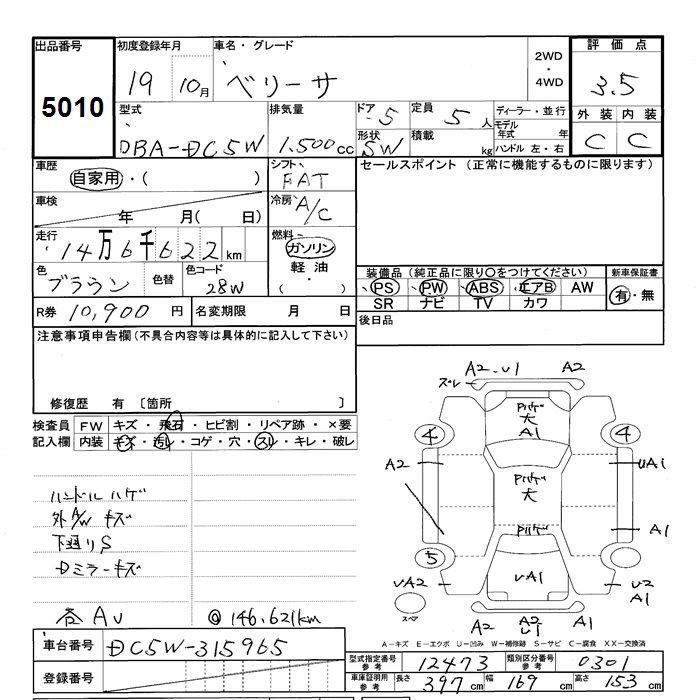 出品番号 初度登録年月 車名・グレード 2WD・4WD 評価点
5010 19 10月 ベリーサ 3.5
型式 排気量 ドア 5 定員 5人 ディーラー・並行 外装 内装
DBA-DC5W 1.500cc 形状 SW 積載 kg モデル年式 年 ハンドル 左・右 C C
車歴 自家用・( ) シフト FAT セールスポイント(正常に機能するものに限ります)
車検 年 月( 日) 冷房 A/C
走行 14万6千622km 燃料 ガソリン
軽油
( )
色 ブラウン 色替 色コード 28W
装備品(純正品に限り○をつけてください) 新車保証書
PS PW ABS エアB AW 有・無
SR ナビ TV カワ
R券 10,900円 名変期限 月 日 後日品
注意事項申告欄(不具合内容等は具体的に記入して下さい)
修復歴 有 〔箇所 〕
検査員 FW キズ・飛石・ヒビ割・リペア跡・×要
記入欄 内装 キズ・汚レ・コゲ・穴・スレ・キレ・破レ
ハンドルハゲ
外A/W キズ
下廻りS
Dミラーキズ
各AU ◎146,621km
A2-U1 A2
ズレ
大
A1
4 4
A2 UA1
大
A1
5
UA2 UA1 U2
A1
スペア
A2 A2 A2
U1
A-キズ E-エクボ U-凹み W-補修跡 S-サビ C-腐食 XX-交換済
車台番号 DC5W-315965
登録番号
型式指定番号 参考 12473 類別区分番号 参考 0301
車庫証明用 参考 長さ 397cm 幅 169cm 高さ 153cm